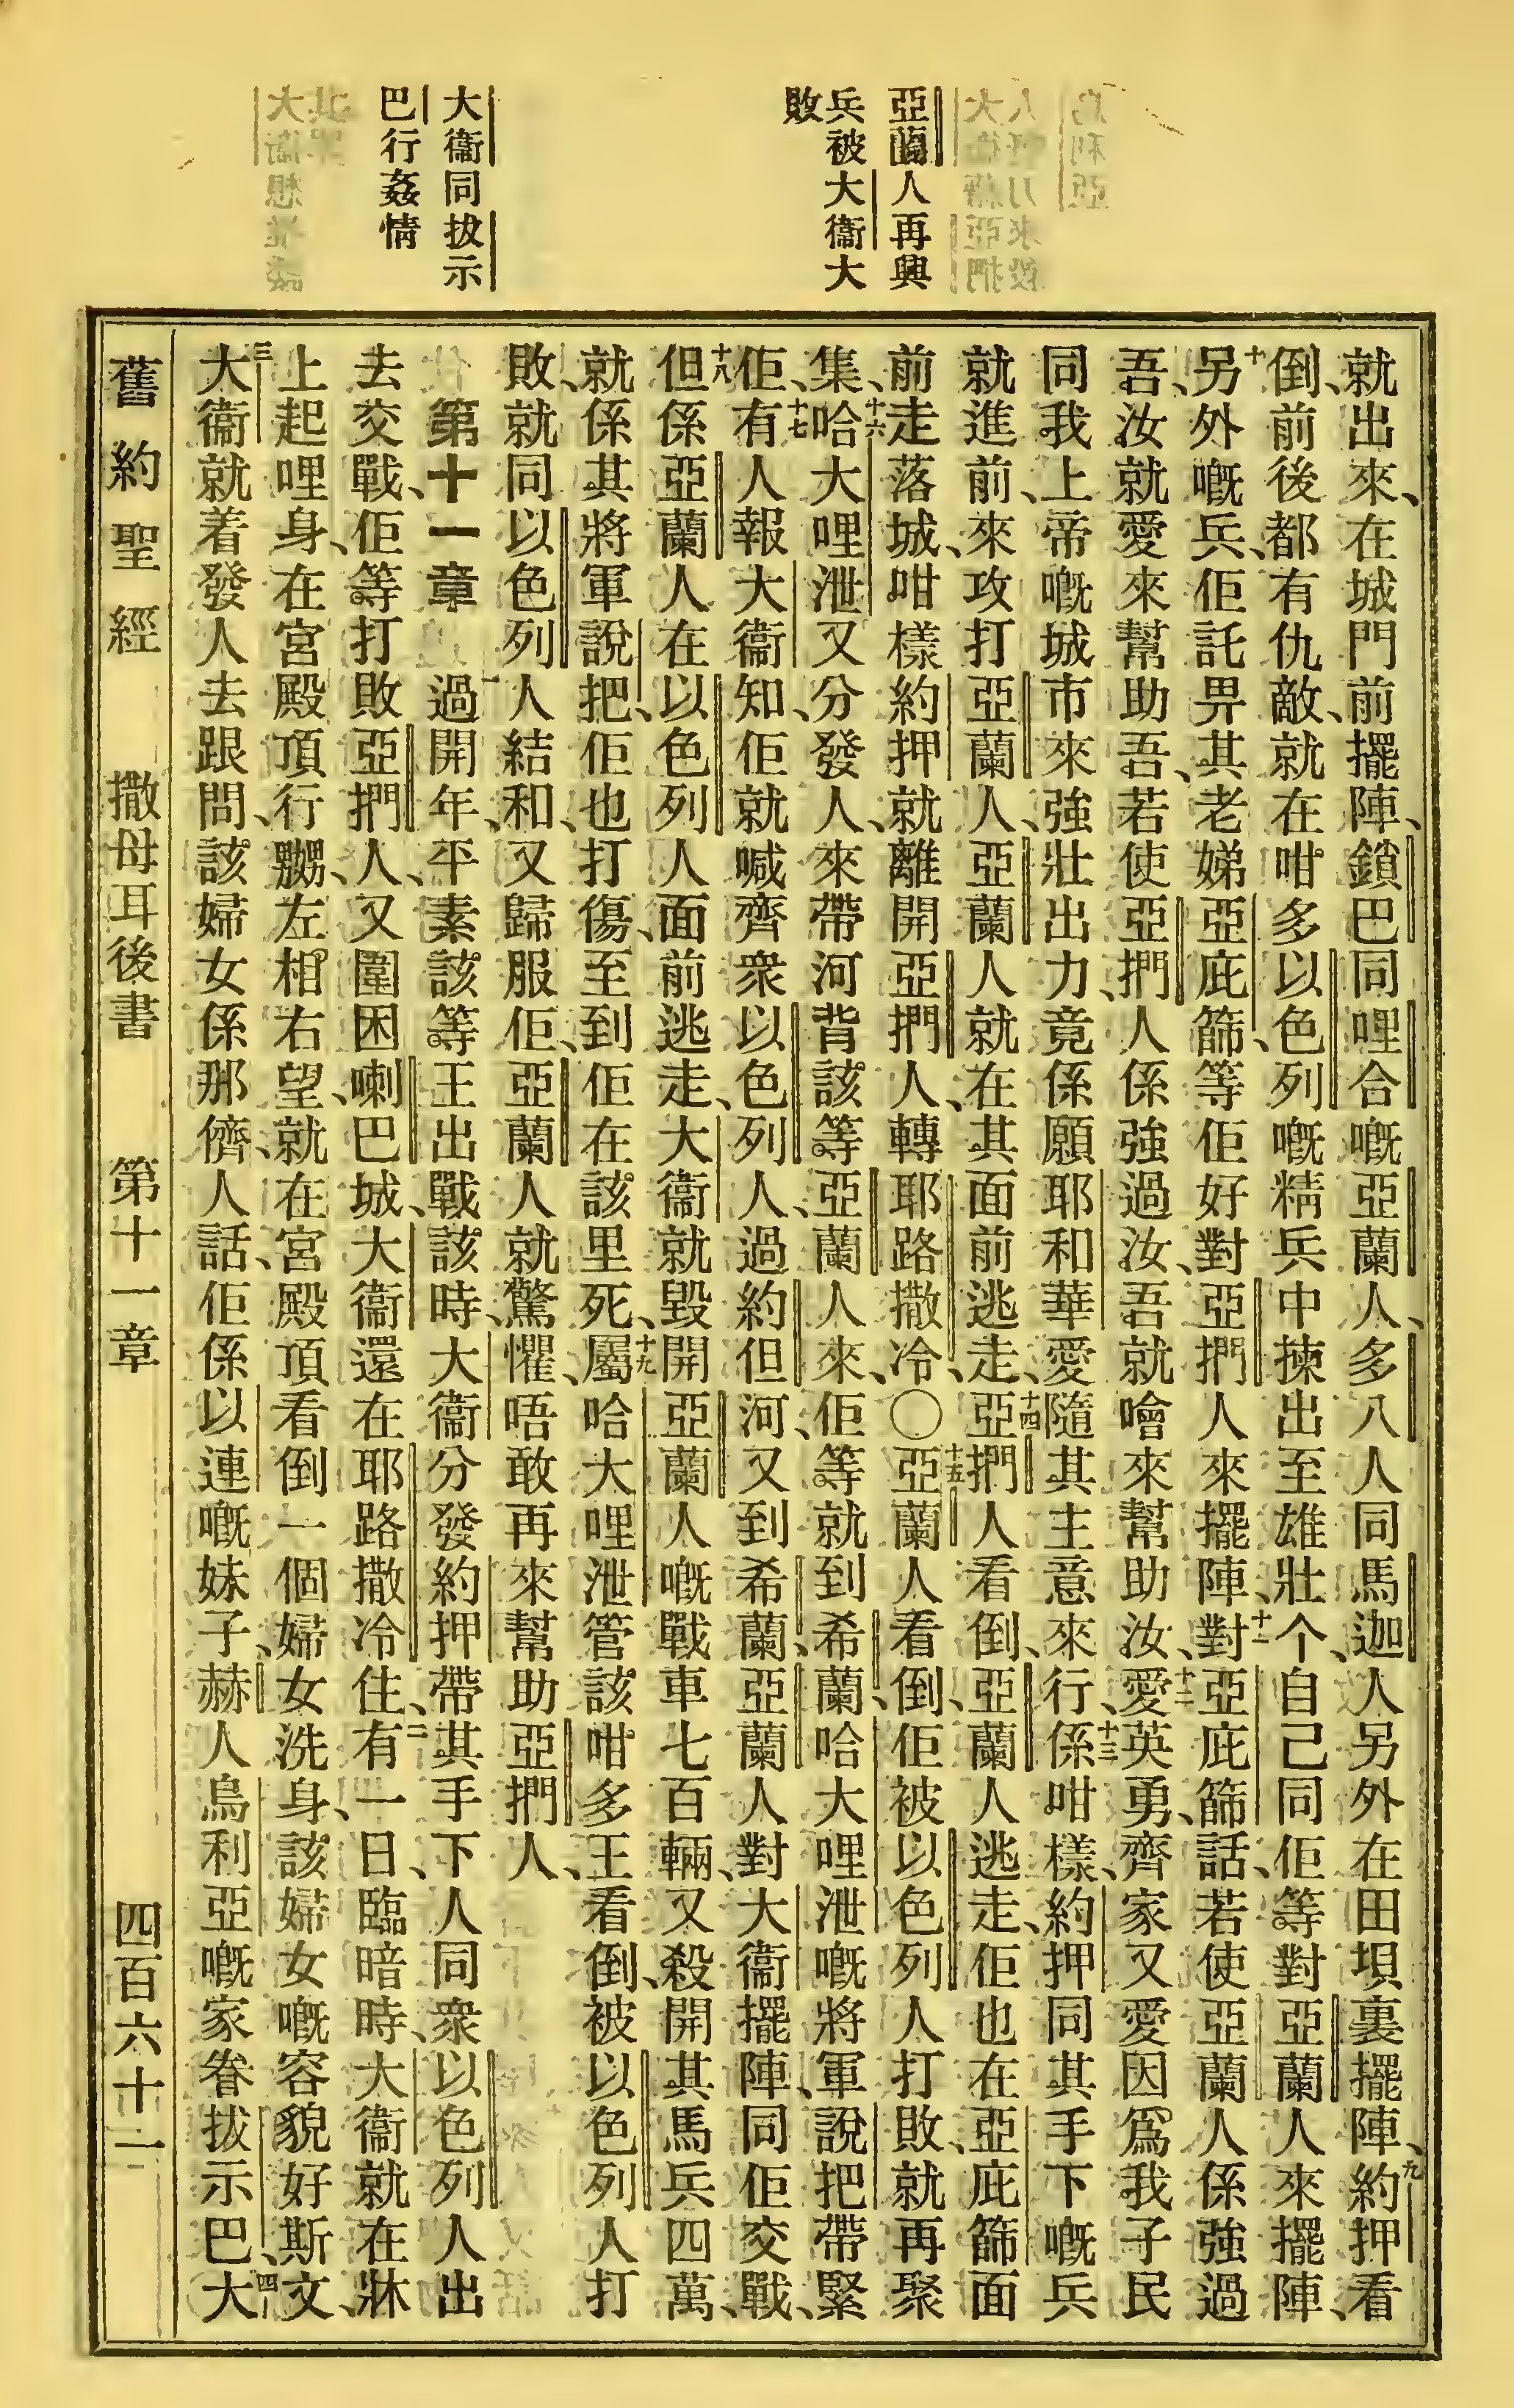 亞蘭人再興
兵被大衞大
敗
大衞同拔示
巴行姦情
就出來、在城門前擺陣、鎖巴同哩合嘅亞蘭人、多八人同馬迦人另外在田垻裏擺陣、九約押看
倒、前後都有仇敵、就在咁多以色列嘅精兵中揀出至雄壯个、自己同佢等對亞蘭人來擺陣、
十另外嘅兵、佢託畀其老娣亞庇篩、等佢好對亞捫人來擺陣、十一對亞庇篩話、若使亞蘭人係強過
吾、汝就愛來幫助吾、若使亞捫人係強過汝、吾就噲來幫助汝、十二愛英勇、齊家又愛因爲我子民
同我上帝嘅城市來強壯出力、竟係願耶和華愛隨其主意來行、十三係咁樣、約押同其手下嘅兵
就進前、來攻打亞蘭人、亞蘭人就在其面前逃走、十四亞捫人看倒、亞蘭人逃走、佢也在亞庇篩面
前走落城、咁樣約押就離開亞捫人、轉耶路撒冷、〇十五亞蘭人看倒、佢被以色列人打敗、就再聚
集、十六哈大哩泄又分發人、來帶河背該等亞蘭人來、佢等就到希蘭、哈大哩泄嘅將軍說把帶緊
佢、十七有人報大衞知、佢就喊齊衆以色列人、過約但河、又到希蘭、亞蘭人對大衞擺陣、同佢交戰、
十八但係亞蘭人在以色列人面前逃走、大衞就毀開亞蘭人嘅戰車七百輛、又殺開其馬兵四萬、
就係其將軍說把、佢也打傷、至到佢在該里死、十九屬哈大哩泄管該咁多王看倒、被以色列人打
敗、就同以色列人結和、又歸服佢、亞蘭人就驚懼、唔敢再來幫助亞捫人、
第十一章 一過開年、平素該等王出戰該時、大衞分發約押帶其手下人、同衆以色列人出
去交戰、佢等打敗亞捫人、又圍困喇巴城、大衞還在耶路撒冷住、二有一日、臨暗時、大衞就在牀
上起哩身、在宮殿頂行嬲、左相右望、就在宮殿頂看倒一個婦女洗身、該婦女嘅容貌好斯文、
三大衞就着發人去跟問、該婦女係那儕、人話、佢係以連嘅妹子、赫人烏利亞嘅家眷拔示巴、四大
舊約聖經 撒母耳後書 第十一章 四百六十二